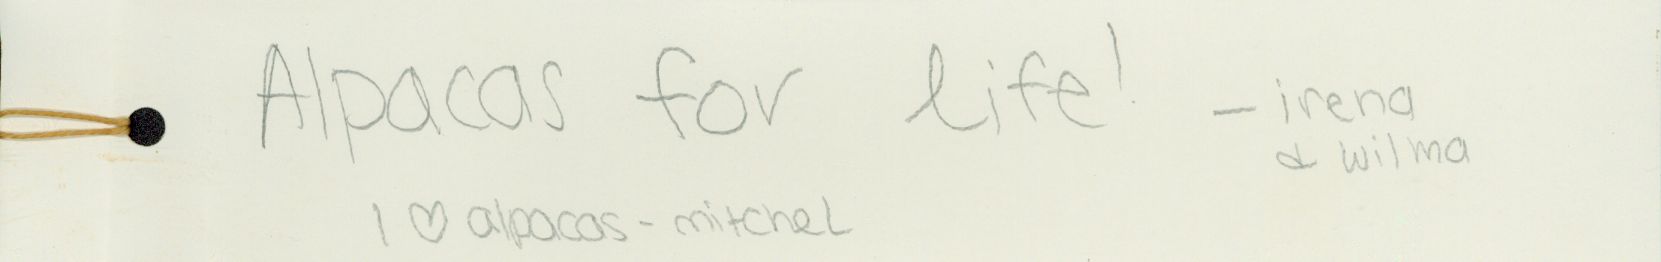 Alpacas for life! - irena
& wilma
I ♡ alpacas - mitchel